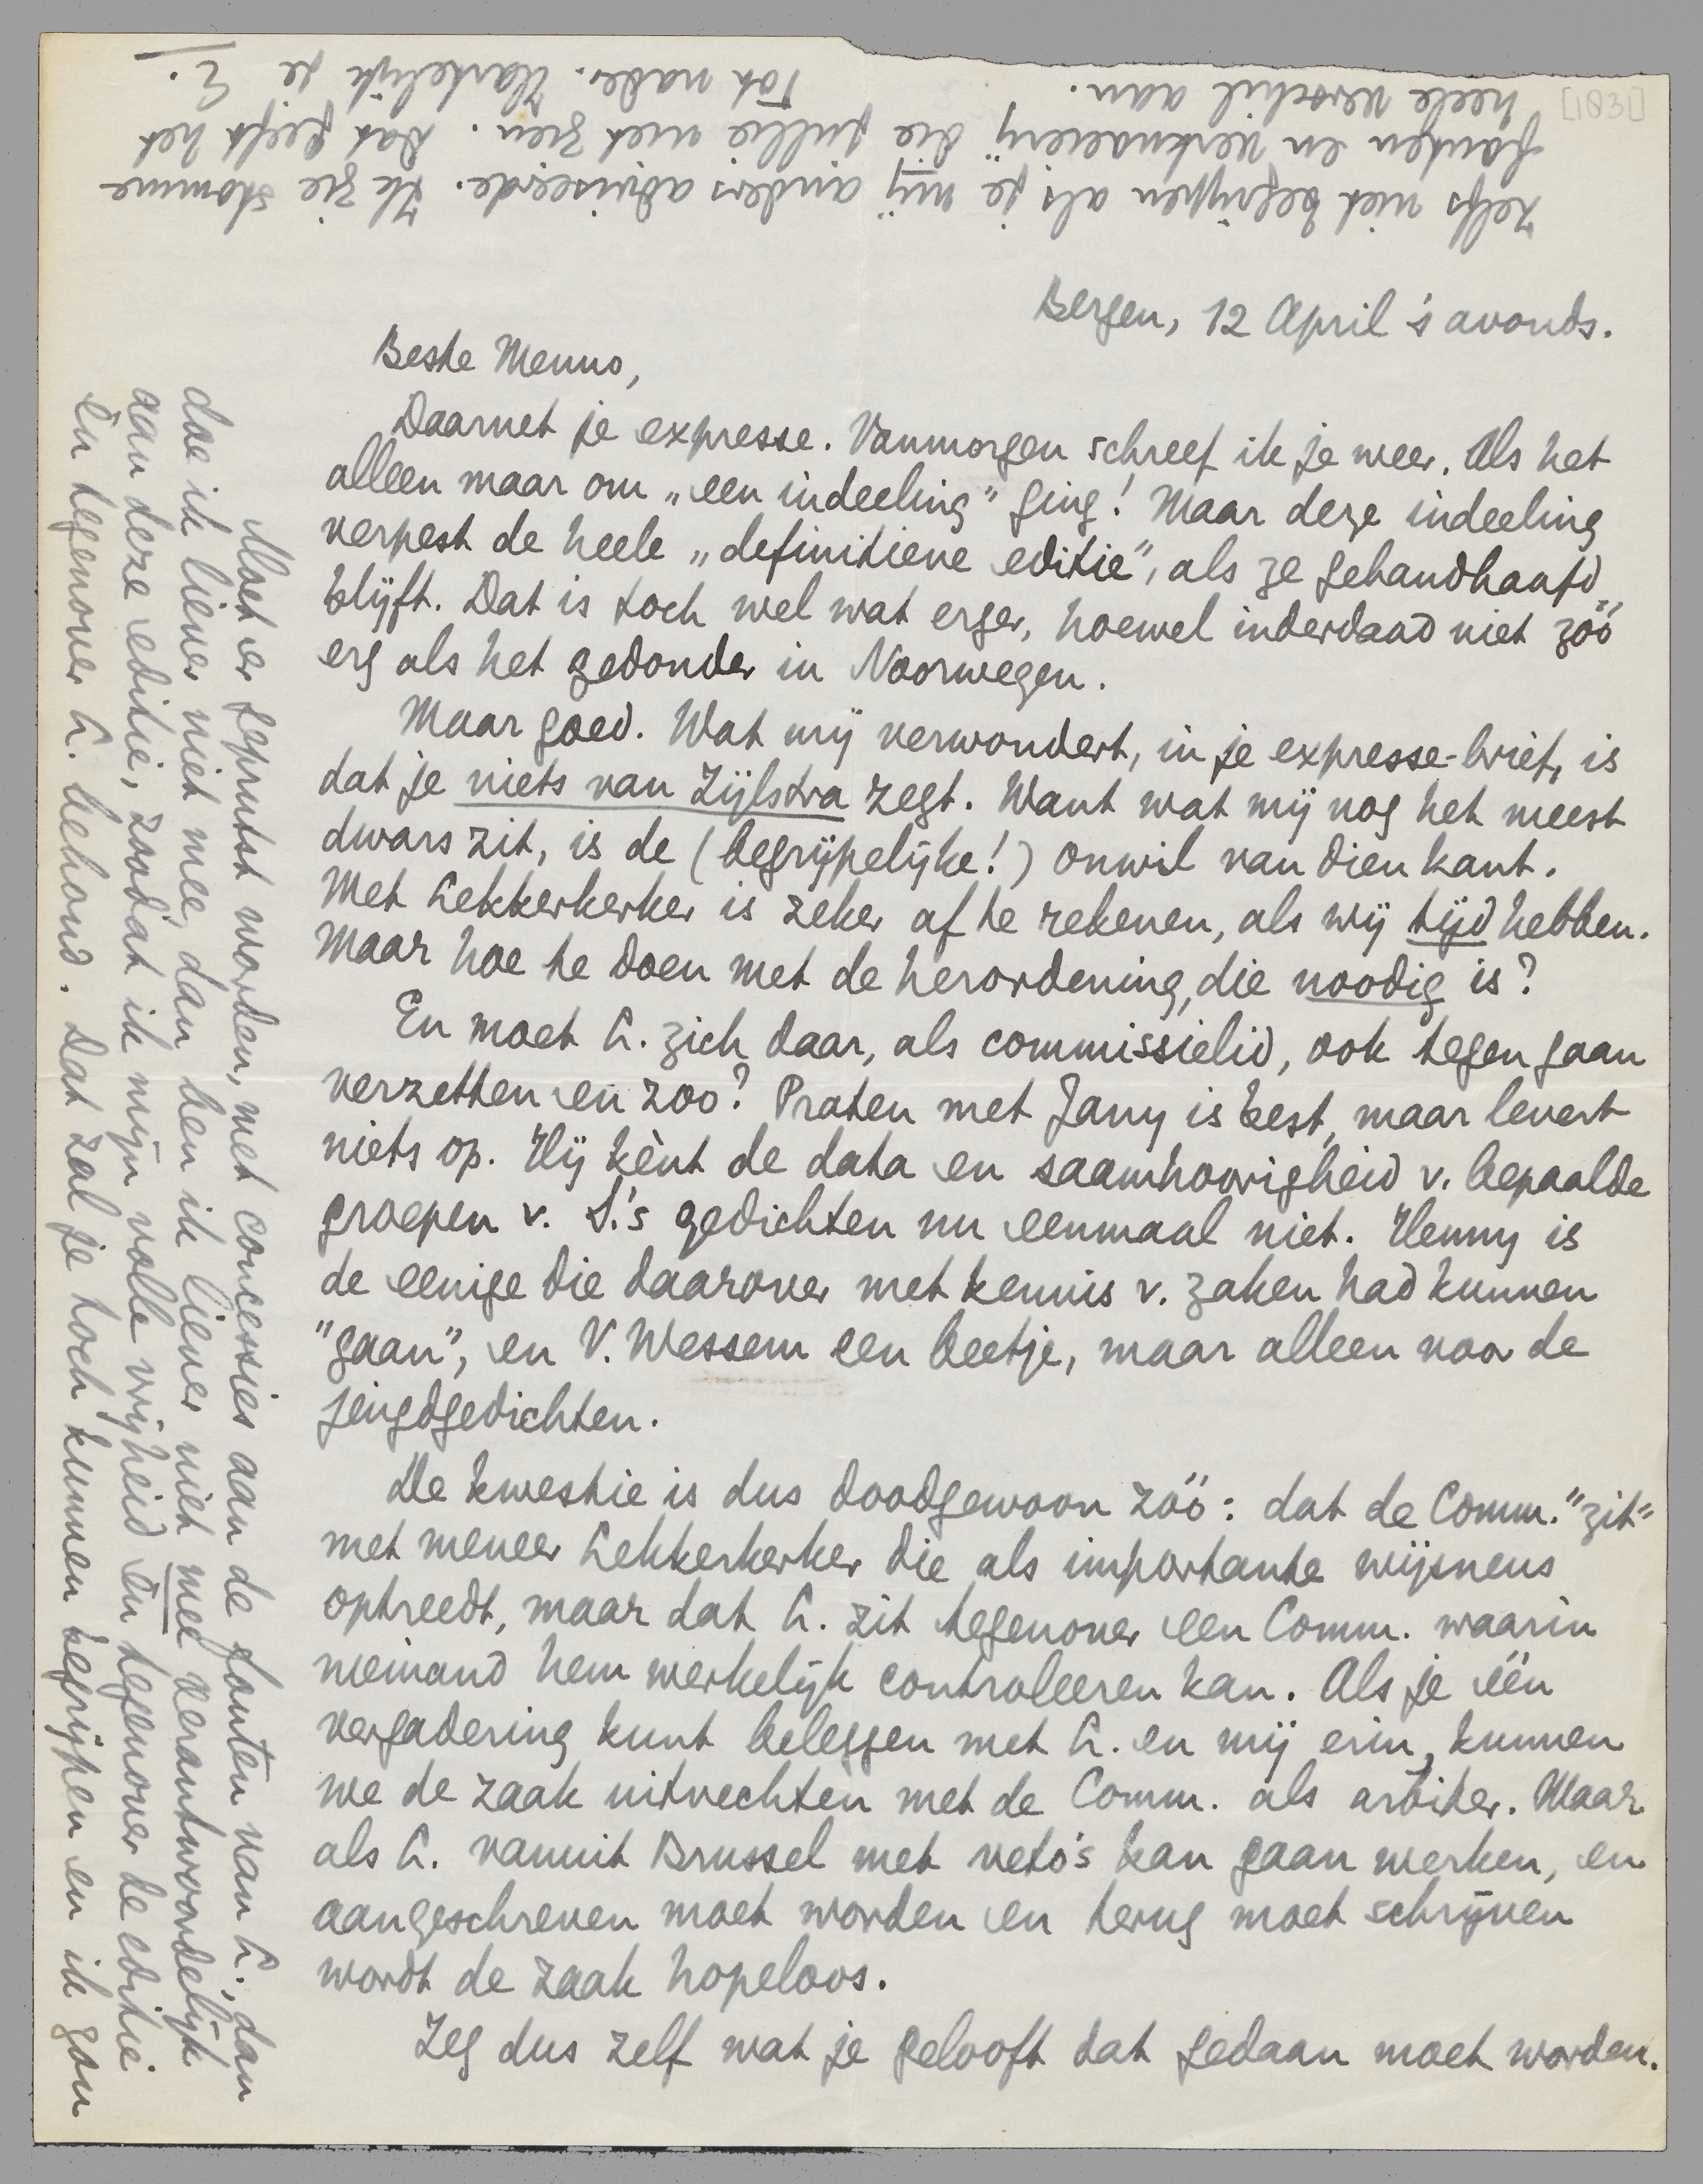 [1031]
Bergen, 12 April 's avonds.
Beste Menno,
Daarnet je expresse. Vanmorgen schreef ik je weer. Als het
alleen maar om „een indeeling" ging! Maar deze indeeling
verpest de heele „definitieve editie", als ze gehandhaafd
blijft. Dat is toch wel wat erger, hoewel inderdaad niet zóó
erg als het gedonder in Noorwegen.
Maar goed. Wat mij verwondert, in je expresse-brief, is
dat je niets van Zijlstra zegt. Want wat mij nog het meest
dwars zit, is de (begrijpelijke!) onwil van dien kant.
Met Lekkerkerker is zeker af te rekenen, als wij tijd hebben.
Maar hoe te doen met de herordening, die noodig is?
En moet L. zich daar, als commissielid, ook tegen gaan
verzetten en zoo? Praten met Jany is best, maar levert
niets op. Hij kènt de data en saamhoorigheid v. bepaalde
groepen v. S.'s gedichten nu eenmaal niet. Henny is
de eenige die daarover met kennis v. zaken had kunnen
"gaan", en V. Wessem een beetje, maar alleen voor de
jeugdgedichten.
De kwestie is dus doodgewoon zóó: dat de Comm. "zit"
met meneer Lekkerkerker die als importante wijsneus
optreedt, maar dat L. zit tegenover een Comm. waarin
niemand hem werkelijk controleeren kan. Als je één
vergadering kunt beleggen met L. en mij erin, kunnen
we de zaak uitvechten met de Comm. als arbiter. Maar
als L. vanuit Brussel met veto's kan gaan werken, en
aangeschreven moet worden en terug moet schrijven
wordt de zaak hopeloos.
Zeg dus zelf wat je gelooft dat gedaan moet worden.
Moet er geprutst worden, met concessies aan de fouten van L., dan
doe ik liever niet mee, dan ben ik liever niet mee verantwoordelijk
aan deze editie, zoodat ik mijn volle vrijheid èn tegenover de editie
èn tegenover L. behoud. Dat zal je toch kunnen begrijpen en ik zou
zelfs niet begrijpen als je mij anders adviseerde. Ik zie stomme
fouten en verknoeierij die jullie niet zien. Dat geeft het
heele verschil aan. Tot nader. Hartelijk je
E.